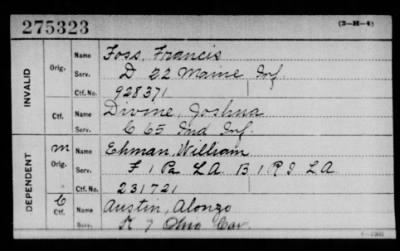 275323 (3-H-4)
INVALID
Orig. Name Foss, Francis
Serv. D 22 Maine Inf
Ctf. No. 928371
Ctf. Name Divine, Joshua
Serv. C 65 Ind Inf.
DEPENDENT
M Orig. Name Ehman, William
Serv. F 1 Pa L.A. B 1 R I L A
Ctf. No. 231721
C Ctf. Name Austin, Alonzo
Serv. K 7 Ohio Cav.